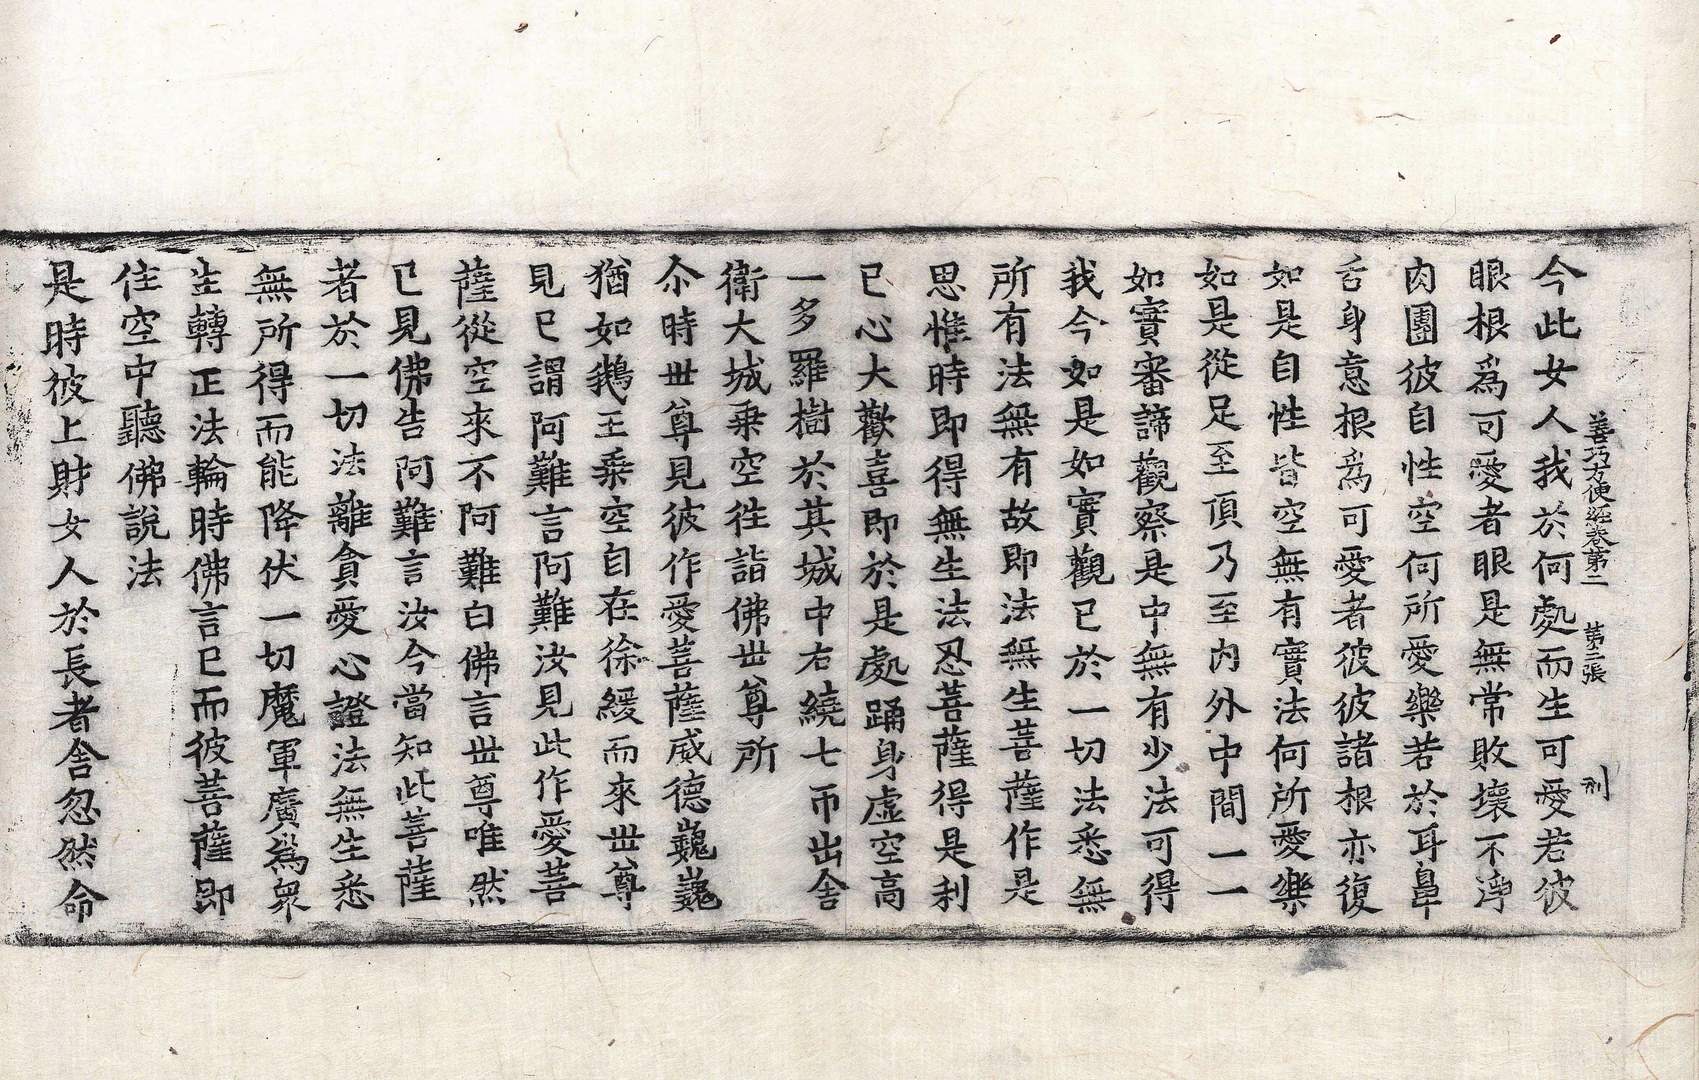 善巧方便經卷第二　第三張　刑
今此女人我於何處而生可愛若彼
眼根爲可愛者眼是無常敗壞不淨
肉團彼自性空何所愛樂若於耳鼻
舌身意根爲可愛者彼彼諸根亦復
如是自性皆空無有實法何所愛樂
如是從足至頂乃至内外中間一一
如實審諦觀察是中無有少法可得
我今如是如實觀已於一切法悉無
所有法無有故即法無生菩薩作是
思惟時即得無生法忍菩薩得是利
已心大歡喜即於是處踊身虛空高
一多羅樹於其城中右繞七帀出舍
衛大城乗空往詣佛世尊所
尒時世尊見彼作愛菩薩威德巍巍
猶如鵝王乗空自在徐緩而來世尊
見已謂阿難言阿難汝見此作愛菩
薩從空來不阿難白佛言世尊唯然
已見佛告阿難言汝今當知此菩薩
者於一切法離貪愛心證法無生悉
無所得而能降伏一切魔軍廣爲衆
生轉正法輪時佛言已而彼菩薩即
住空中聽佛說法
是時彼上財女人於長者舍忽然命